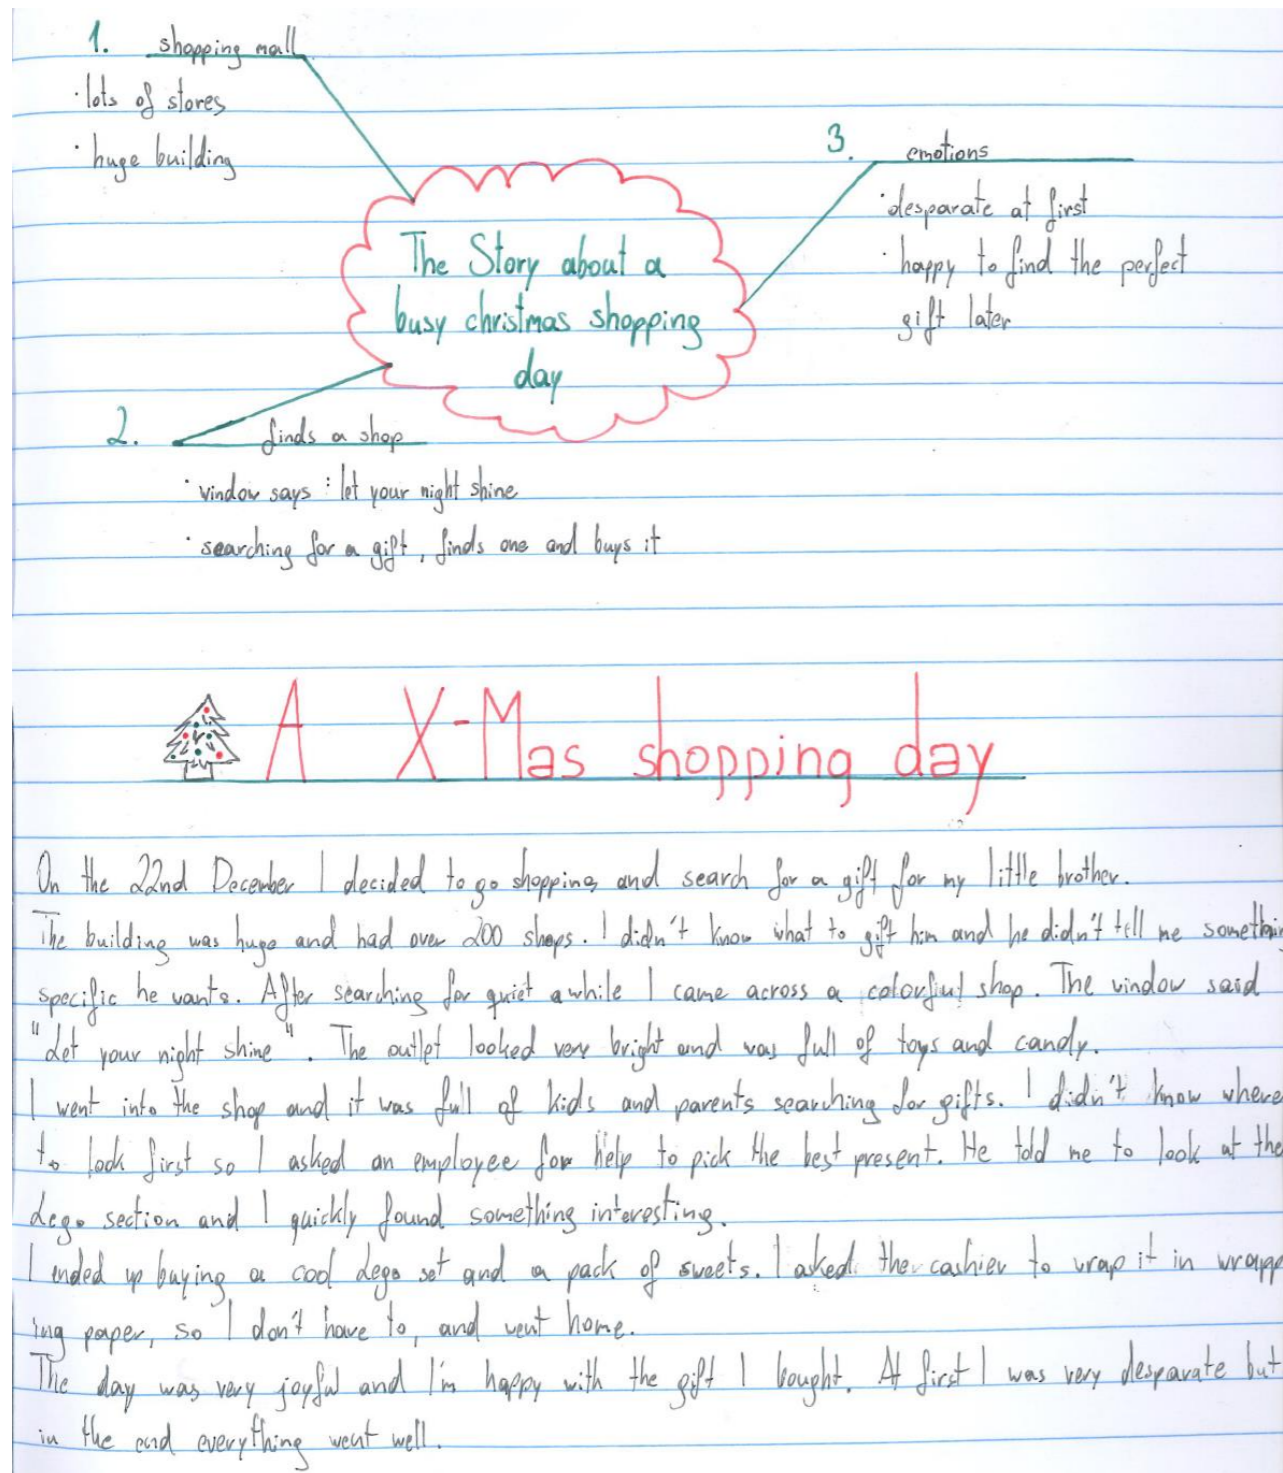 1. shopping mall
· lots of stores
· huge building
3. emotions
· desparate at first
· happy to find the perfect
gift later
The Story about a
busy christmas shopping
day
2. finds a shop
· window says : let your night shine
· searching for a gift, finds one and buys it
A X-Mas shopping day
On the 22nd December I decided to go shopping and search for a gift for my little brother.
The building was huge and had over 200 shops. I didn't know what to gift him and he didn't tell me something
specific he wants. After searching for quiet awhile I came across a colorful shop. The window said
"Let your night shine". The outlet looked very bright and was full of toys and candy.
I went into the shop and it was full of kids and parents searching for gifts. I didn't know where
to look first so I asked an employee for help to pick the best present. He told me to look at the
Lego section and I quickly found something interesting.
I ended up buying a cool Lego set and a pack of sweets. I asked the cashier to wrap it in wrapp
ing paper, so I don't have to, and went home.
The day was very joyful and I'm happy with the gift I bought. At first I was very desparate but
in the end everything went well.